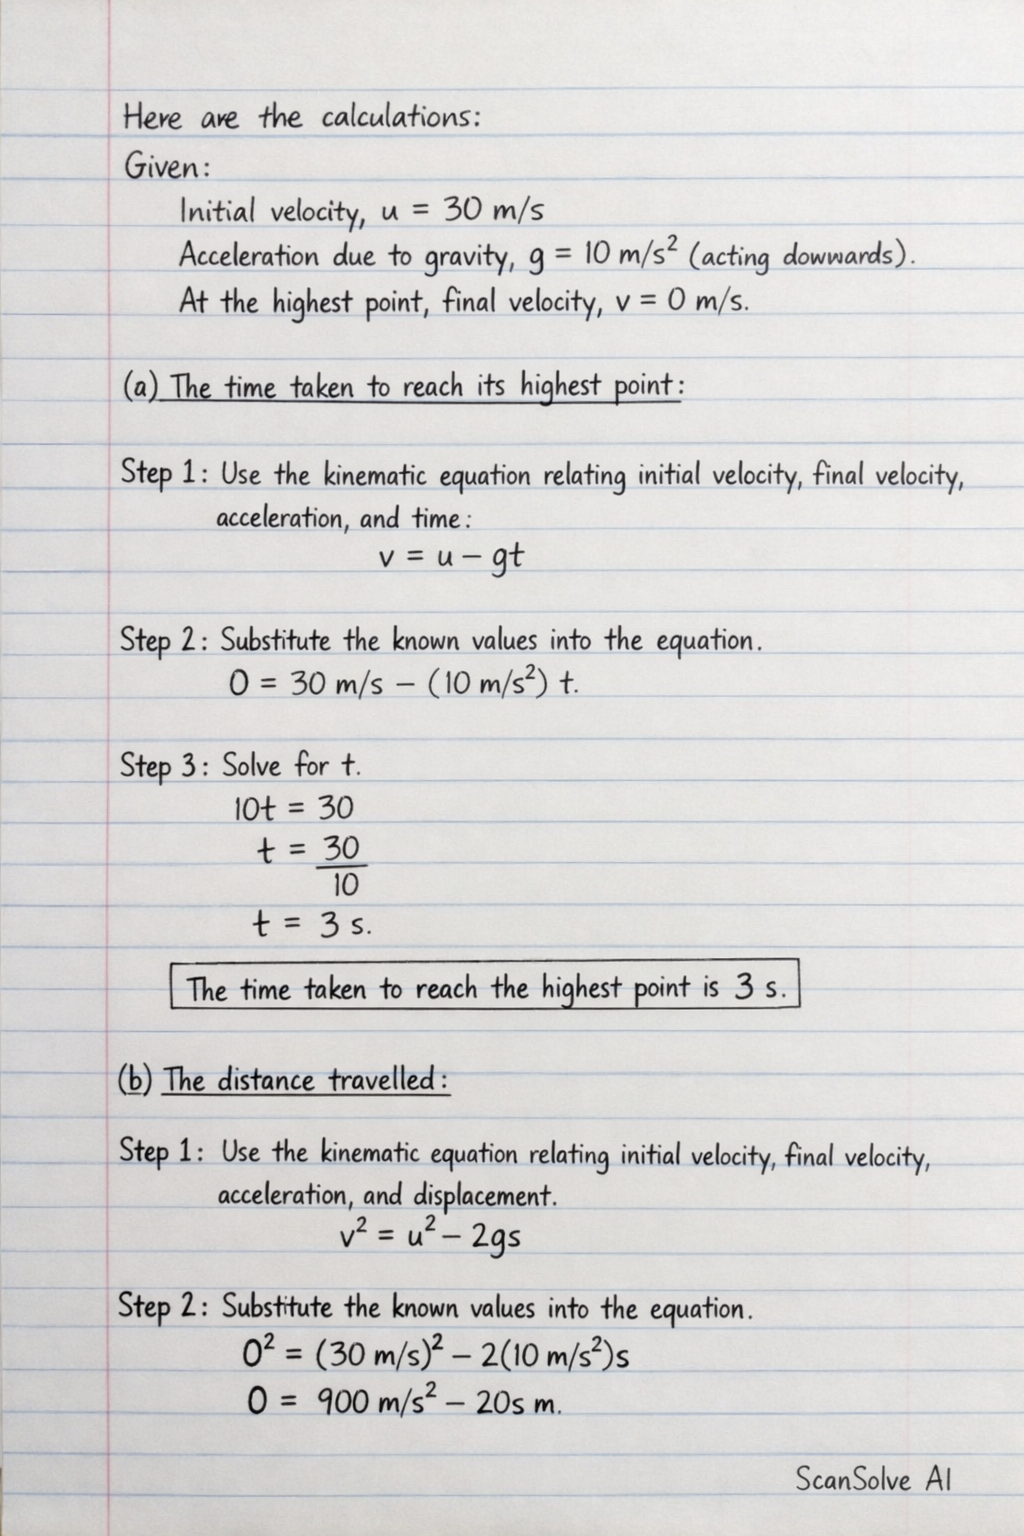 Here are the calculations:
Given:
Initial velocity, u = 30 m/s
Acceleration due to gravity, g = 10 m/s² (acting dowwards).
At the highest point, final velocity, v = 0 m/s.
(a) The time taken to reach its highest point:
Step 1: Use the kinematic equation relating initial velocity, final velocity,
acceleration, and time:
v = u − gt
Step 2: Substitute the known values into the equation.
0 = 30 m/s − (10 m/s²) t.
Step 3: Solve for t.
10t = 30
t = 30
10
t = 3 s.
The time taken to reach the highest point is 3 s.
(b) The distance travelled:
Step 1: Use the kinematic equation relating initial velocity, final velocity,
acceleration, and displacement.
v² = u² − 2gs
Step 2: Substitute the known values into the equation.
0² = (30 m/s)² − 2(10 m/s²)s
0 = 900 m/s² − 20s m.
ScanSolve AI